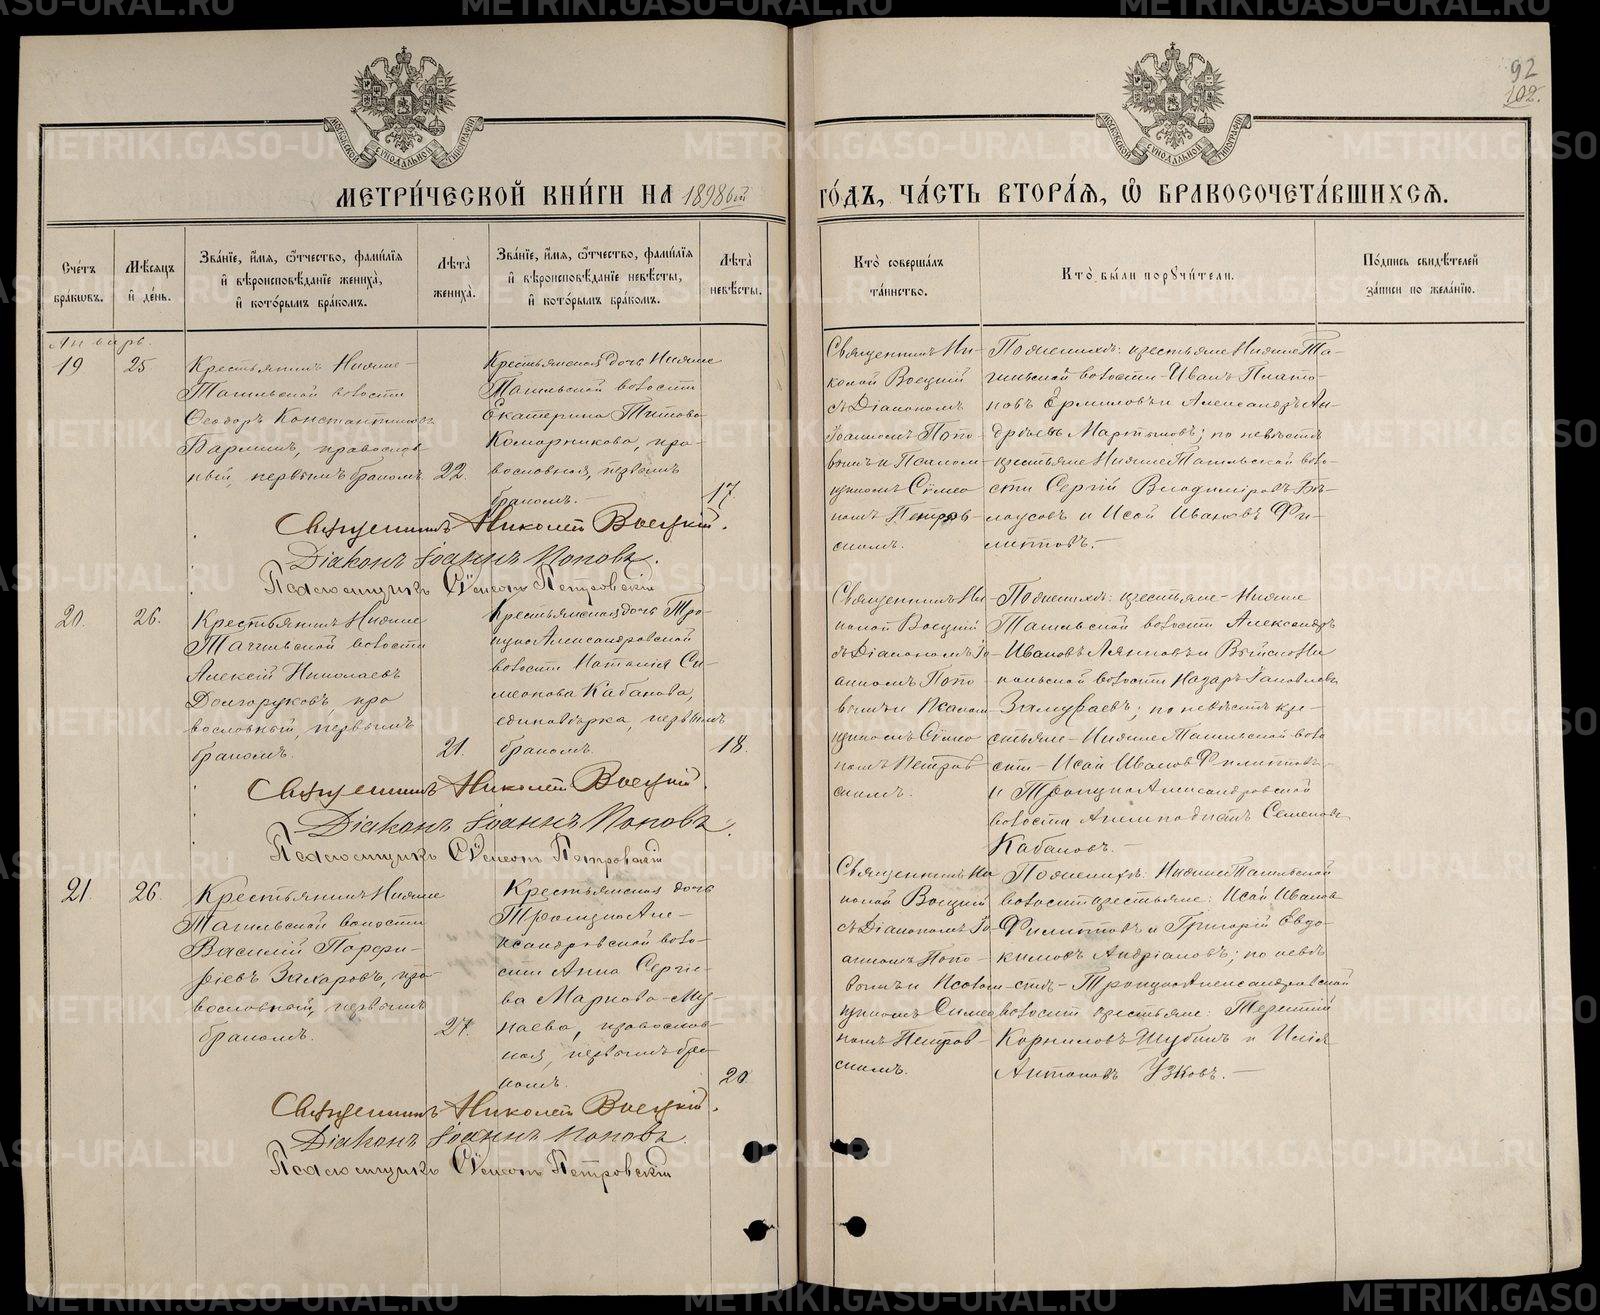 92
102.
МОСКОВСКОЙ СѴНОДАЛЬНОЙ ТИПОГРАФІИ
МОСКОВСКОЙ СѴНОДАЛЬНОЙ ТИПОГРАФІИ
МЕТРИ́ЧЕСКОЙ КНИ́ГИ НА 1898ой ГО́ДЪ, ЧА́СТЬ ВТОРА́Я, Ѽ БРАКОСОЧЕТА́ВШИХСѦ.
Сче́тъ бра́кѡвъ.
Мѣ́сѧцъ и҆ де́нь.
Зва́нїе, и҆́мѧ, ѻ҆́тчество, фами́лїѧ и҆ вѣроисповѣ́данїе жениха̀, и҆ кото́рымъ бра́комъ.
Лѣ́та жениха̀.
Зва́нїе, и҆́мѧ, ѻ҆́тчество, фами́лїѧ и҆ вѣроисповѣ́данїе невѣ́сты, и҆ кото́рымъ бра́комъ.
Лѣ́та невѣ́сты.
Кто̀ соверша́лъ та́инство.
Кто̀ бы́ли порꙋчи́тели.
По́дпись свидѣ́телей за́писи по жела́нїю.
Январь.
19
25
Крестьянинъ Нижне-
Тагильской волости
Ѳеодоръ Константиновъ
православ
ный, первымъ бракомъ.
22.
Крестьянская дочь Нижне
Тагильской волости
Екатерина Титова
Комарникова, пра-
вославная, первымъ
бракомъ.-
17
Священникъ Ни-
колай Воецкій
съ Діакономъ
Іоанномъ Попо-
вымъ и Псалом-
щикомъ Сѵмео
номъ Петров-
скимъ.
По женихѣ: крестьяне Нижне Та-
гильской волости Иванъ Плато-
новъ Ермиловъ и Александръ Ан-
дреевъ Мартыновъ; по невѣстѣ
крестьяне Нижне Тагильской воло-
сти Сергій Владиміровъ Бѣ-
лоусовъ и Исай Ивановъ Фи-
липповъ.-
Священникъ Николай Воецкій.
Діаконъ Іоаннъ Поповъ.
Псаломщикъ Сѵмеонъ Петровскій
20.
26.
Крестьянинъ Нижне
Тагильской волости
Алексій Николаевъ
Долгоруковъ, пра
вославный, первымъ
бракомъ.
21.
Крестьянская дочь Тро-
ицкоАлександровской
волости Наталія Си-
меонова Кабанова,
единовѣрка, первымъ
бракомъ.
18.
Священникъ Ни-
колай Воецкій
съ Діакономъ Іо-
анномъ Попо-
вымъ и Псалом
щикомъ Сѵмео
номъ Петров
скимъ.
По женихѣ: крестьяне Нижне
Тагильской волости Александръ
Ивановъ и Ни
кольской волости Назаръ Іаковлевъ
по невѣстѣ кре-
стьяне Нижне Тагильской воло
сти Исай Ивановъ Филипповъ
и ТроицкоАлександровской
волости Семеновъ
Кабановъ.-
Священникъ Николай Воецкій.
Діаконъ Іоаннъ Поповъ.
Псаломщикъ Сѵмеонъ Петровскій
21.
26.
Крестьянинъ Нижне
Тагильской волости
Василій Парфи-
ріевъ Захаровъ, пра-
вославный, первымъ
бракомъ.
27.
Крестьянская дочь
ТроицкоАле-
ксандровской воло-
сти Анна Сергіе-
ва Маркова-Му-
наева, православ-
ная, первымъ бра-
комъ.
20
Священникъ Ни
колай Воецкій
съ Діакономъ Іо-
анномъ Попо-
вымъ и Псалом
щикомъ Симео
номъ Петров
скимъ.
По женихѣ: Нижне Тагильской
волости крестьяне: Исай Иванов
Филипповъ и Григорій Евдо-
кимовъ Андріановъ; по невѣ
стѣ - ТроицкоАлександровской
волости крестьяне: Терентій
Корниловъ Шубинъ и Илія
Антоновъ Узковъ.-
Священникъ Николай Воецкій.
Діаконъ Іоаннъ Поповъ.
Псаломщикъ Сѵмеонъ Петровскій
METRIKI.GASO-URAL.RU